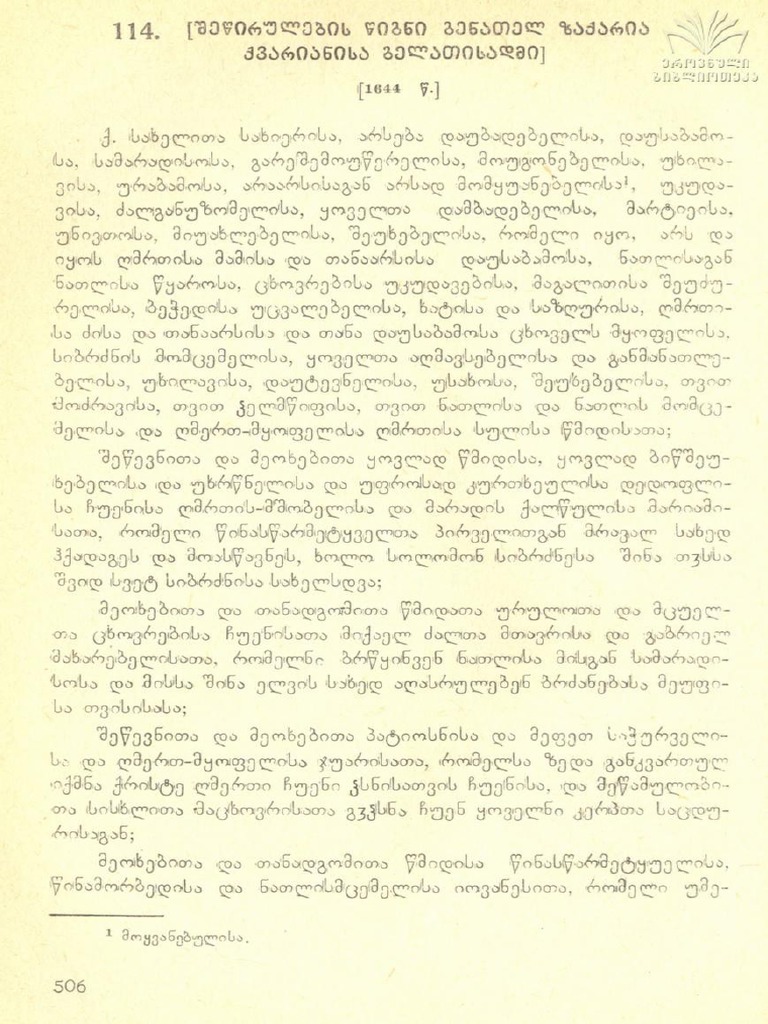 114. [შეწირულების წიგნი გენათელ ზაქარია
ქვარიანისა გელათისადმი]
ეროვნული
ბიბლიოთეკა
[1644 წ.]
ქ. სახელითა სახიერისა, არსება დაუბადებელისა, დაუსაბამო-
სა, სამარადისოსა, გარეშემოუწერელისა, მოუგონებელისა, უხილა-
ვისა, ურაბამოსა, არაარსისაგან არსად მომყუანებელისა¹, უკუდა-
ვისა, ძალგანუზომელისა, ყოველთა დამბადებელისა, მარტივისა,
უნივთოსა, მიუახლებელისა, შეუხებელისა, რომელი იყო, არს და
იყოს ღმრთისა მამისა და თანაარსისა დაუსაბამოსა, ნათლისაგან
ნათლისა წყაროსა, ცხოვრებისა უკუდავებისა, მაგალითისა შეუძუ-
რელისა, ბეჭედისა უცვალებელისა, ხატისა და საზღურისა, ღმრთი-
სა ძისა და თანაარსისა და თანა დაუსაბამოსა ცხოველს მყოფელისა,
სიბრძნის მომცემელისა, ყოველთა აღმავსებელისა და განმანათლე-
ბელისა, უხილავისა, დაუტევნელისა, უსახოსა, შეუხებელისა, თვით
მოძრავისა, თვით ჴელმწიფისა, თვით ნათლისა და ნათლის მომცე-
მელისა და ღმერთ-მყოფელისა ღმრთისა სულისა წმიდისათა;
შეწევნითა და მეოხებითა ყოვლად წმიდისა, ყოვლად ბიწშეუ-
ხებელისა და უხრწნელისა და უფროსად კურთხეულისა დედოფლი-
სა ჩუენისა ღმრთის-მშობელისა და მარადის ქალწულისა მარიამი-
სათა, რომელი წინასწარმეტყველთა პირველითგან მრავალ სახედ
ჰქადაგეს და მოასწავნეს, ხოლო სოლომონ სიბრძნესა შინა თჳსსა
შვიდ სვეტ სიბრძნისა სახელსდვა;
მეოხებითა და თანადგომითა წმიდათა ურულოთა და მცუელ-
თა ცხოვრებისა ჩუენისათა მიქაელ ძალთა მთავრისა და გაბრიელ
მახარებელისათა, რომელნი ბრწყინვენ ნათლისა მისგან სამარადი-
სოსა და მისსა შინა ელვის სახედ აღასრულებენ ბრძანებასა მეუფი-
სა თვისისასა;
შეწევნითა და მეოხებითა პატიოსნისა და მეფეთ საჭურველი-
სა და ღმერთ-მყოფელისა ჯუარისათა, რომელსა ზედა განკვართულ
იქმნა ქრისტე ღმერთი ჩუენი ჴსნისათვის ჩუენისა, და მეწამულობი-
თა სისხლითა მაცხოვრისათა გჳჴსნა ჩუენ ყოველნი კერპთა საცდუ-
რისაგან;
მეოხებითა და თანადგომითა წმიდისა წინასწარმეტყუელისა,
წინამორბედისა და ნათლისმცემელისა იოვანესითა, რომელი უმე-
¹ მოყვანებულისა.
506